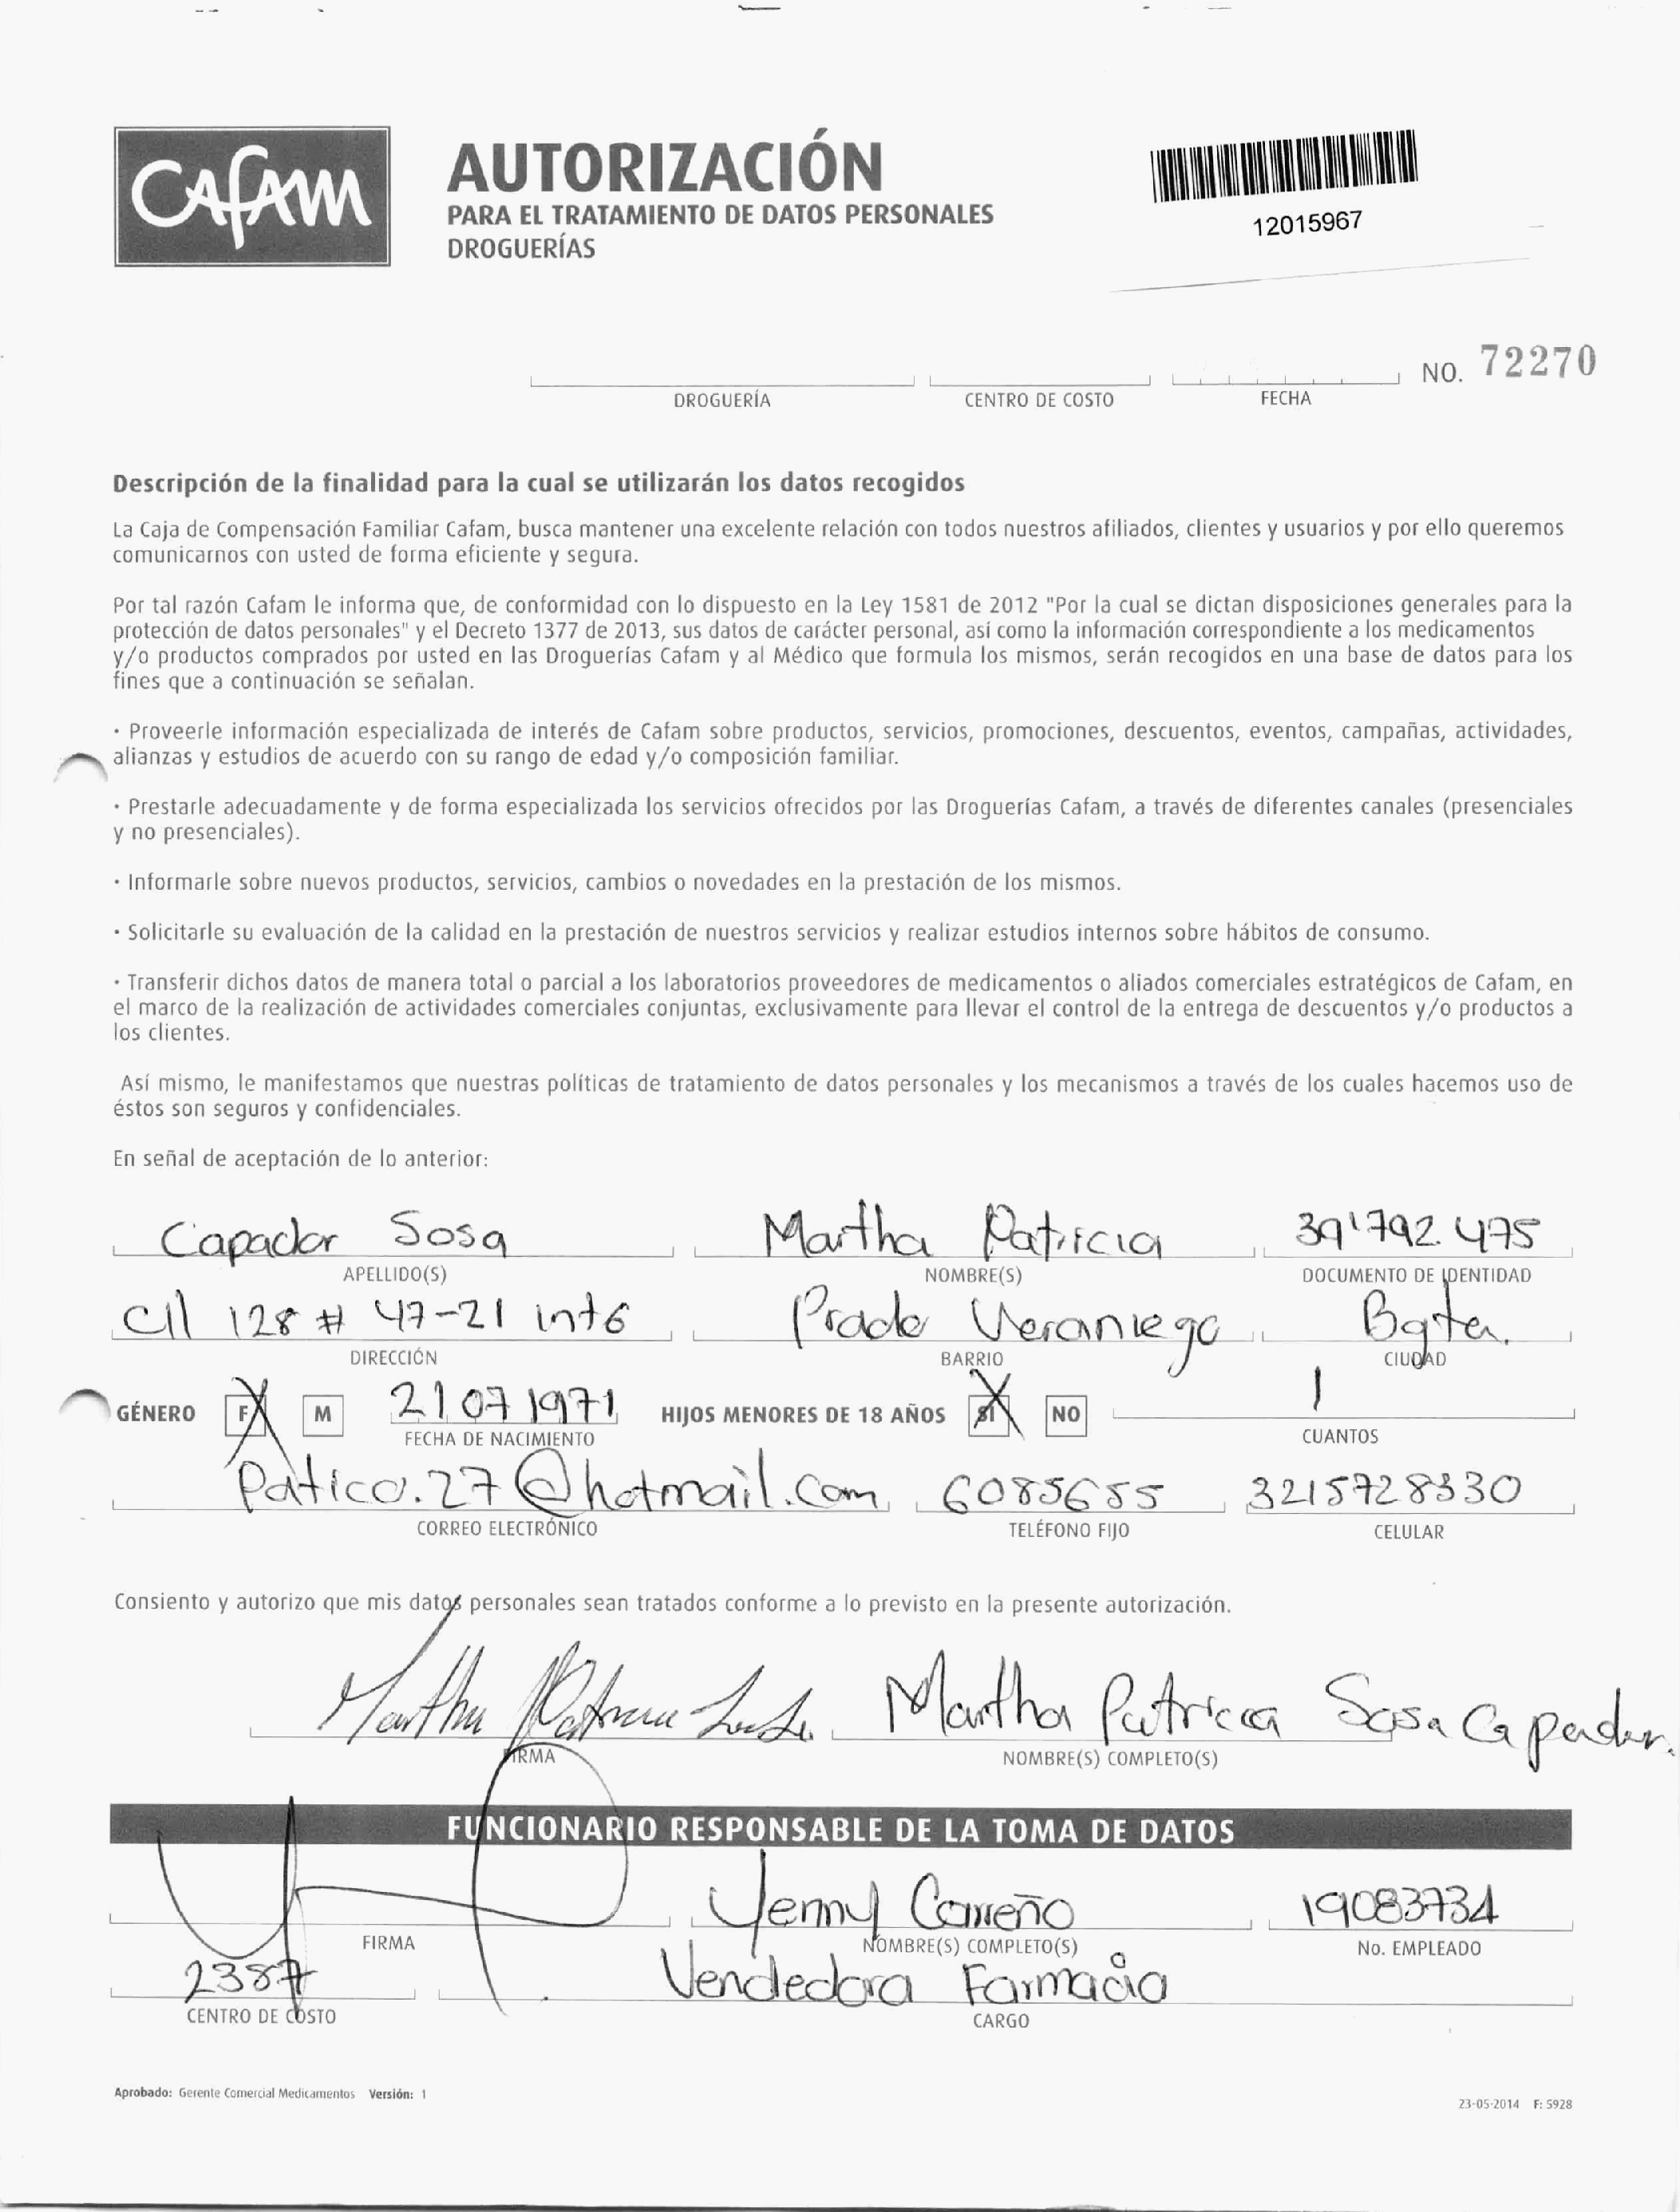 CAFAM
AUTORIZACIÓN
PARA EL TRATAMIENTO DE DATOS PERSONALES
DROGUERÍAS
12015967
NO. 72270
DROGUERÍA CENTRO DE COSTO FECHA
Descripción de la finalidad para la cual se utilizarán los datos recogidos
La Caja de Compensación Familiar Cafam, busca mantener una excelente relación con todos nuestros afiliados, clientes y usuarios y por ello queremos
comunicarnos con usted de forma eficiente y segura.
Por tal razón Cafam le informa que, de conformidad con lo dispuesto en la Ley 1581 de 2012 "Por la cual se dictan disposiciones generales para la
protección de datos personales" y el Decreto 1377 de 2013, sus datos de carácter personal, así como la información correspondiente a los medicamentos
y/o productos comprados por usted en las Droguerías Cafam y al Médico que formula los mismos, serán recogidos en una base de datos para los
fines que a continuación se señalan.
· Proveerle información especializada de interés de Cafam sobre productos, servicios, promociones, descuentos, eventos, campañas, actividades,
alianzas y estudios de acuerdo con su rango de edad y/o composición familiar.
· Prestarle adecuadamente y de forma especializada los servicios ofrecidos por las Droguerías Cafam, a través de diferentes canales (presenciales
y no presenciales).
· Informarle sobre nuevos productos, servicios, cambios o novedades en la prestación de los mismos.
· Solicitarle su evaluación de la calidad en la prestación de nuestros servicios y realizar estudios internos sobre hábitos de consumo.
· Transferir dichos datos de manera total o parcial a los laboratorios proveedores de medicamentos o aliados comerciales estratégicos de Cafam, en
el marco de la realización de actividades comerciales conjuntas, exclusivamente para llevar el control de la entrega de descuentos y/o productos a
los clientes.
Así mismo, le manifestamos que nuestras políticas de tratamiento de datos personales y los mecanismos a través de los cuales hacemos uso de
éstos son seguros y confidenciales.
En señal de aceptación de lo anterior:
Capador Sosa Martha Patricia 39'792.475
APELLIDO(S) NOMBRE(S) DOCUMENTO DE IDENTIDAD
Cll 128 # 47-21 int6 Prado Veraniego Bgta.
DIRECCIÓN BARRIO CIUDAD
GÉNERO F M 21 07 1971 HIJOS MENORES DE 18 AÑOS SI NO 1
FECHA DE NACIMIENTO CUANTOS
Patico.27@hotmail.com 6085655 3215728330
CORREO ELECTRÓNICO TELÉFONO FIJO CELULAR
Consiento y autorizo que mis datos personales sean tratados conforme a lo previsto en la presente autorización.
Martha Patricia Sosa Capador.
FIRMA NOMBRE(S) COMPLETO(S)
FUNCIONARIO RESPONSABLE DE LA TOMA DE DATOS
Yenny Carreño 19083734
FIRMA NOMBRE(S) COMPLETO(S) No. EMPLEADO
2387 Vendedora Farmacia
CENTRO DE COSTO CARGO
Aprobado: Gerente Comercial Medicamentos Versión: 1
23-05-2014 F: 5928